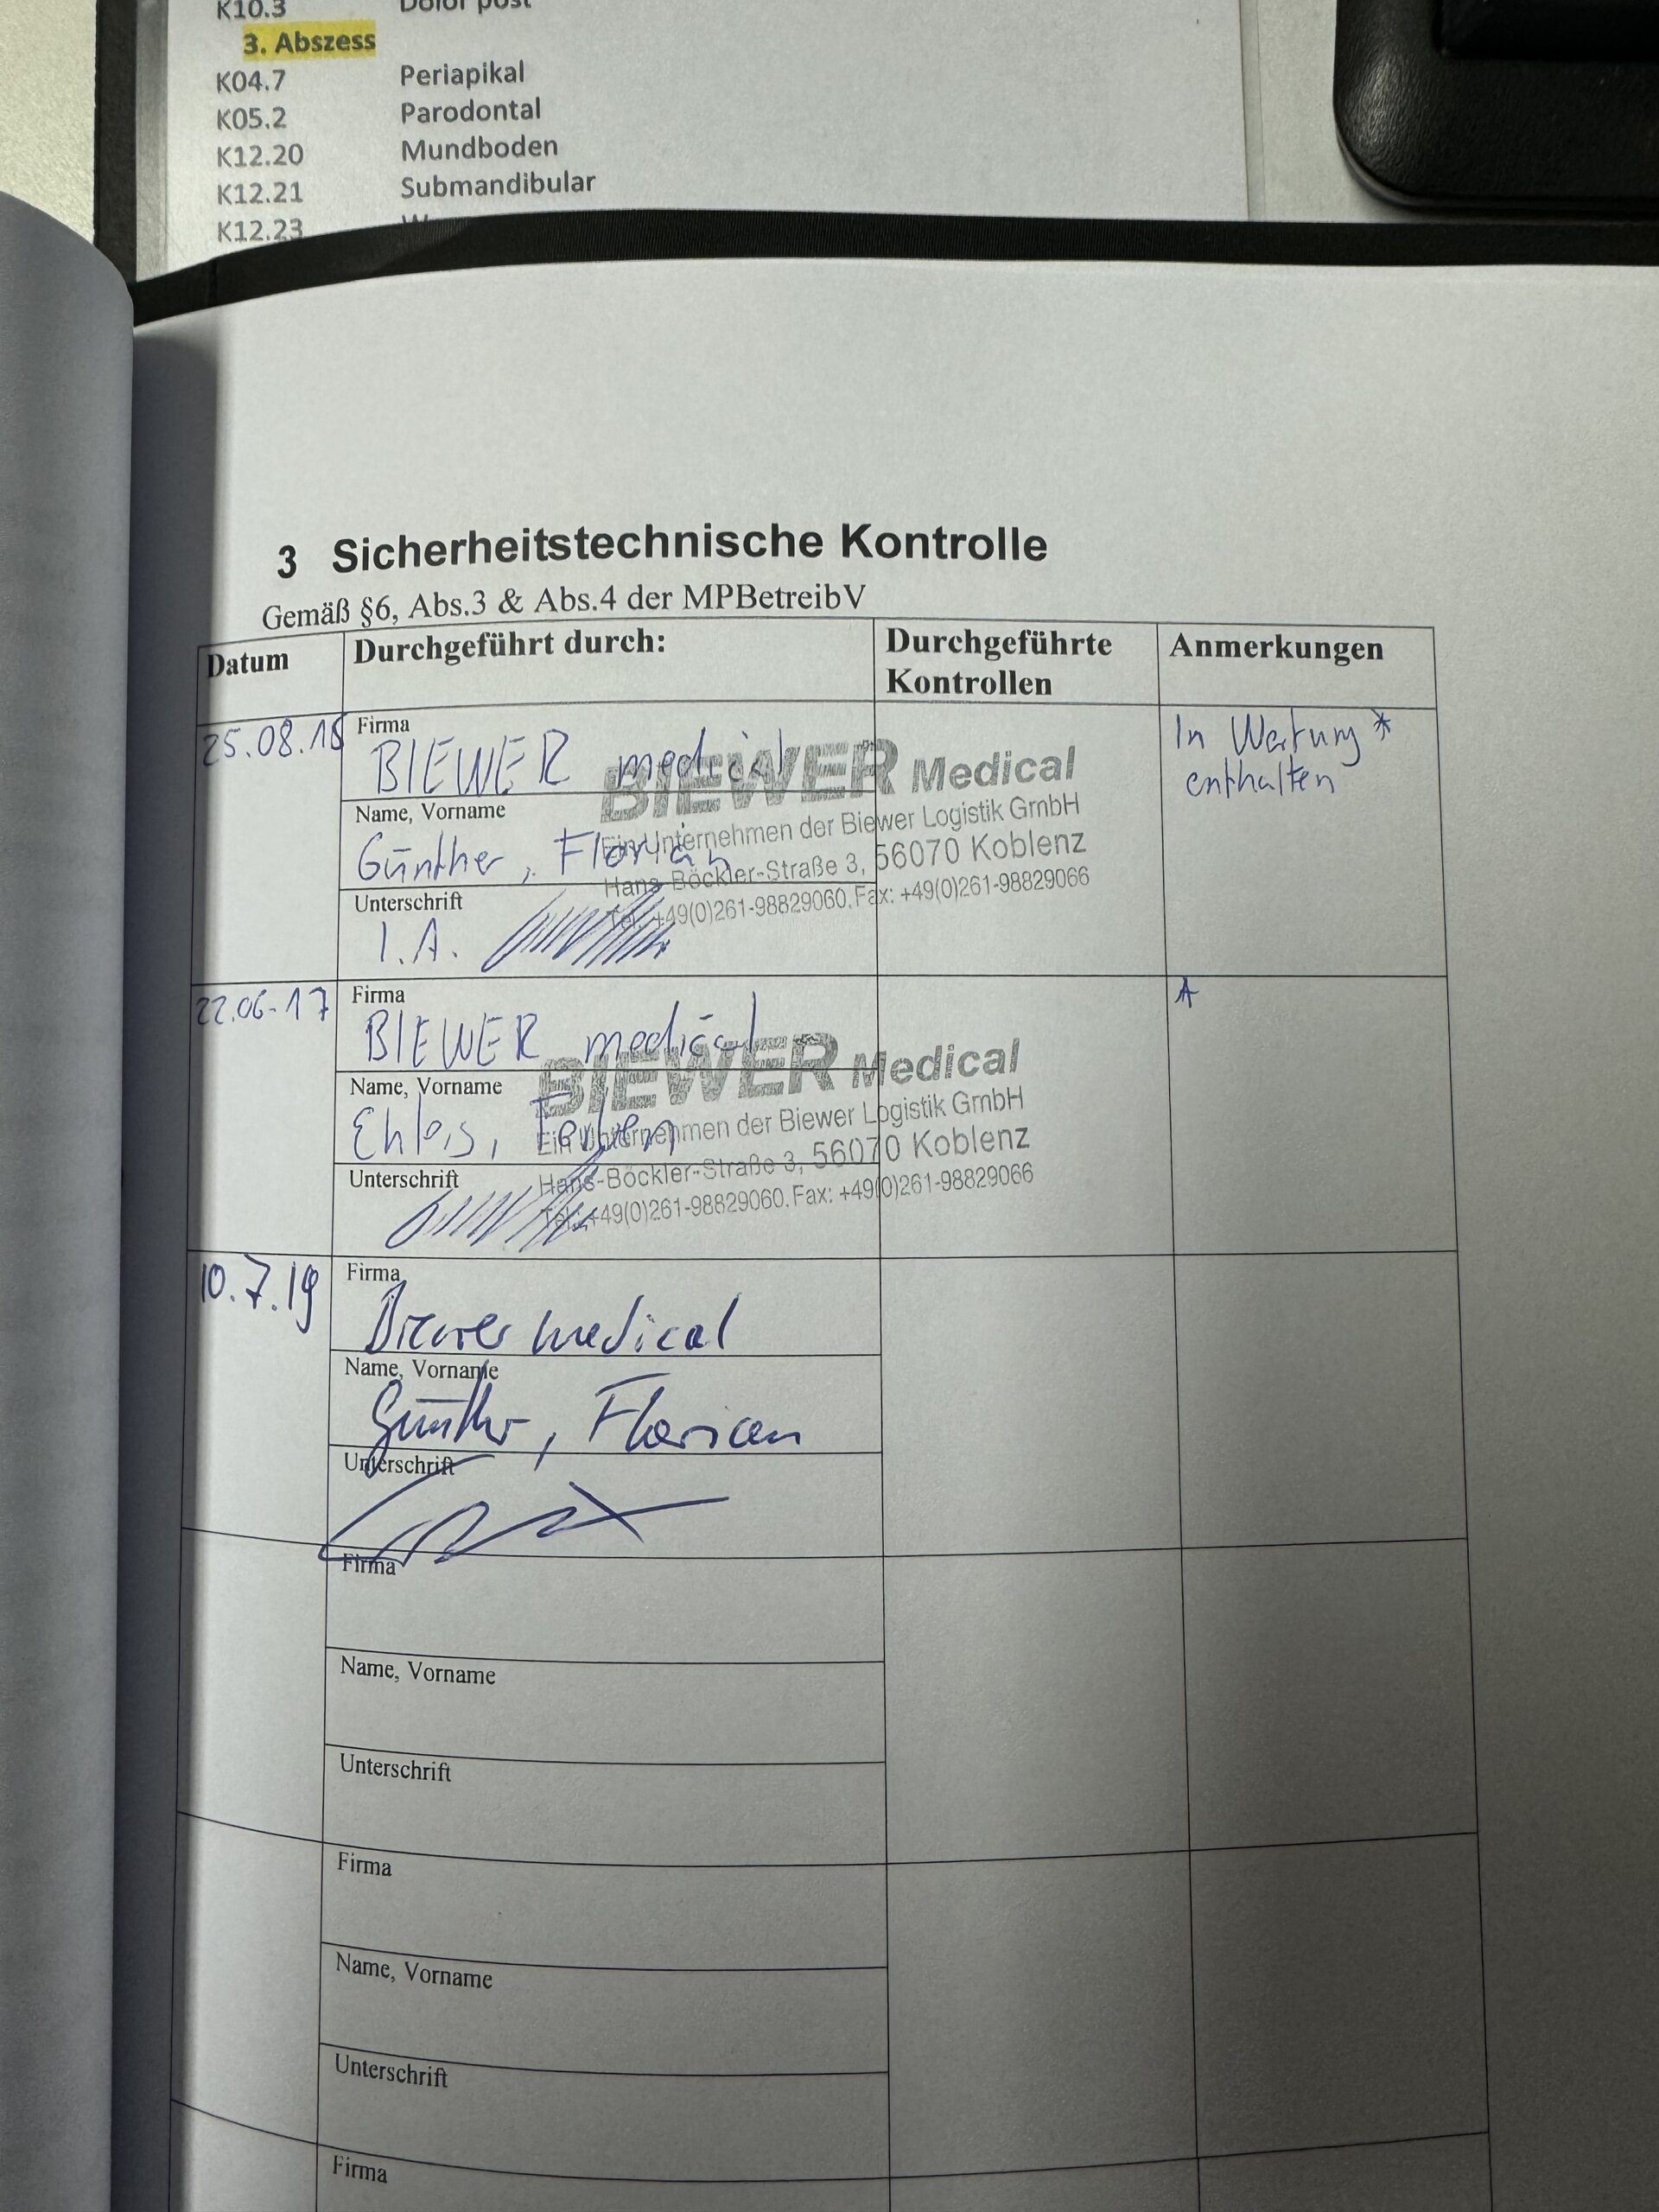 K10.3 Dolor post
3. Abszess
K04.7 Periapikal
K05.2 Parodontal
K12.20 Mundboden
K12.21 Submandibular
K12.23
3 Sicherheitstechnische Kontrolle
Gemäß §6, Abs.3 & Abs.4 der MPBetreibV
Datum Durchgeführt durch: Durchgeführte Kontrollen Anmerkungen
25.08.15
Firma
BIEWER medical
Name, Vorname
Günther, Florian
Unterschrift
I.A.
BIEWER Medical
Ein Unternehmen der Biewer Logistik GmbH
Hans-Böckler-Straße 3, 56070 Koblenz
Tel.: +49(0)261-98829060. Fax: +49(0)261-98829066
In Wartung *
enthalten
22.06.17
Firma
BIEWER medical
Name, Vorname
Unterschrift
BIEWER Medical
Ein Unternehmen der Biewer Logistik GmbH
Hans-Böckler-Straße 3, 56070 Koblenz
Tel.: +49(0)261-98829060. Fax: +49(0)261-98829066
*
10.7.19
Firma
Biewer medical
Name, Vorname
Günther, Florian
Unterschrift
Firma
Name, Vorname
Unterschrift
Firma
Name, Vorname
Unterschrift
Firma